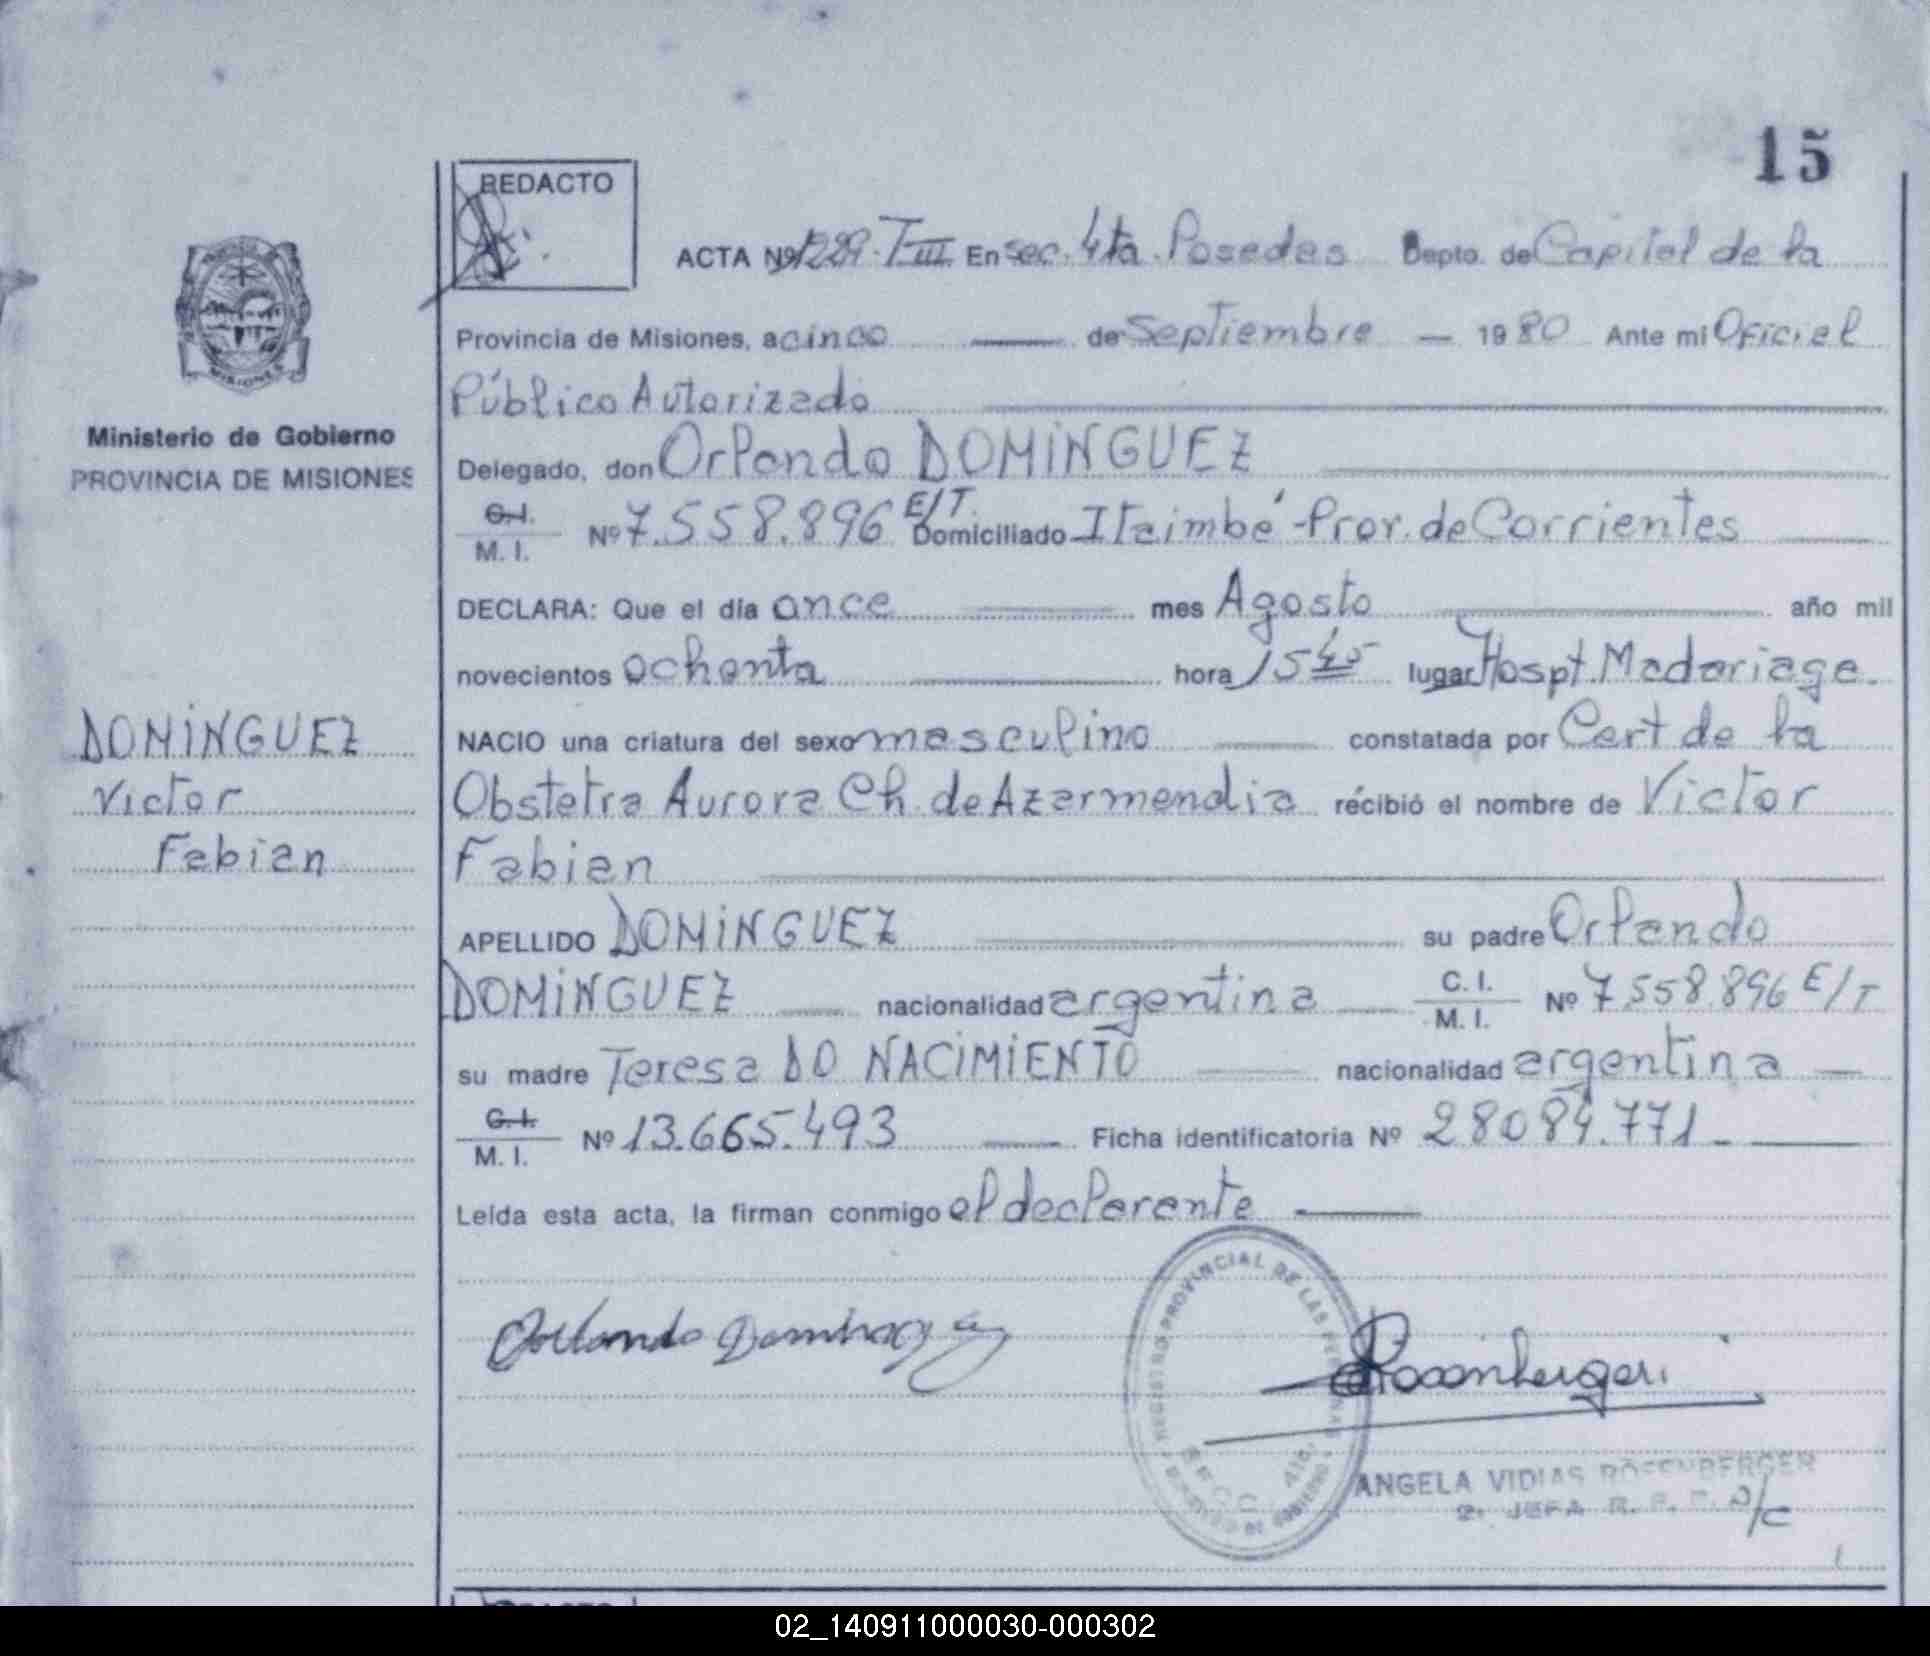 15
REDACTO
ACTA Nº 1289. T III En sec. 4ta. Posadas Depto. de Capital de la
Provincia de Misiones, a cinco de Septiembre 1980 Ante mi Oficial
Público Autorizado
Ministerio de Gobierno
PROVINCIA DE MISIONES
Delegado, don Orlando DOMINGUEZ
C.I. M. I. Nº 7.558.896 E/T. Domiciliado Itaimbé-Prov. de Corrientes
DECLARA: Que el día once mes Agosto año mil
novecientos ochenta hora 15 45 lugar Hospt. Madariaga.
DOMINGUEZ
Victor
Fabian
NACIO una criatura del sexo masculino constatada por Cert de la
Obstetra Aurora Ch. de Azarmendia récibió el nombre de Victor
Fabian
APELLIDO DOMINGUEZ su padre Orlando
DOMINGUEZ nacionalidad argentina C. I. M. I. Nº 7.558.896 E/T
su madre Teresa DO NACIMIENTO nacionalidad argentina
C.I. M. I. Nº 13.665.493 Ficha identificatoria Nº 28084.771
Leída esta acta, la firman conmigo el declarante
Orlando Dominguez
REGISTRO PROVINCIAL DE LAS PERSONAS
ANGELA VIDIAS ROSENBERGER
JEFA R. P. P. a/c
MISIONES
02_140911000030-000302